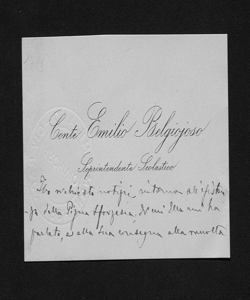 Conte Emilio Belgiojoso
Soprintendente Scolastico
Ho richiesto notizie intorno all'esisten-
za della Pigna Sforzesca, di cui Ella mi ha
parlato, e alla sua consegna alla raccolta